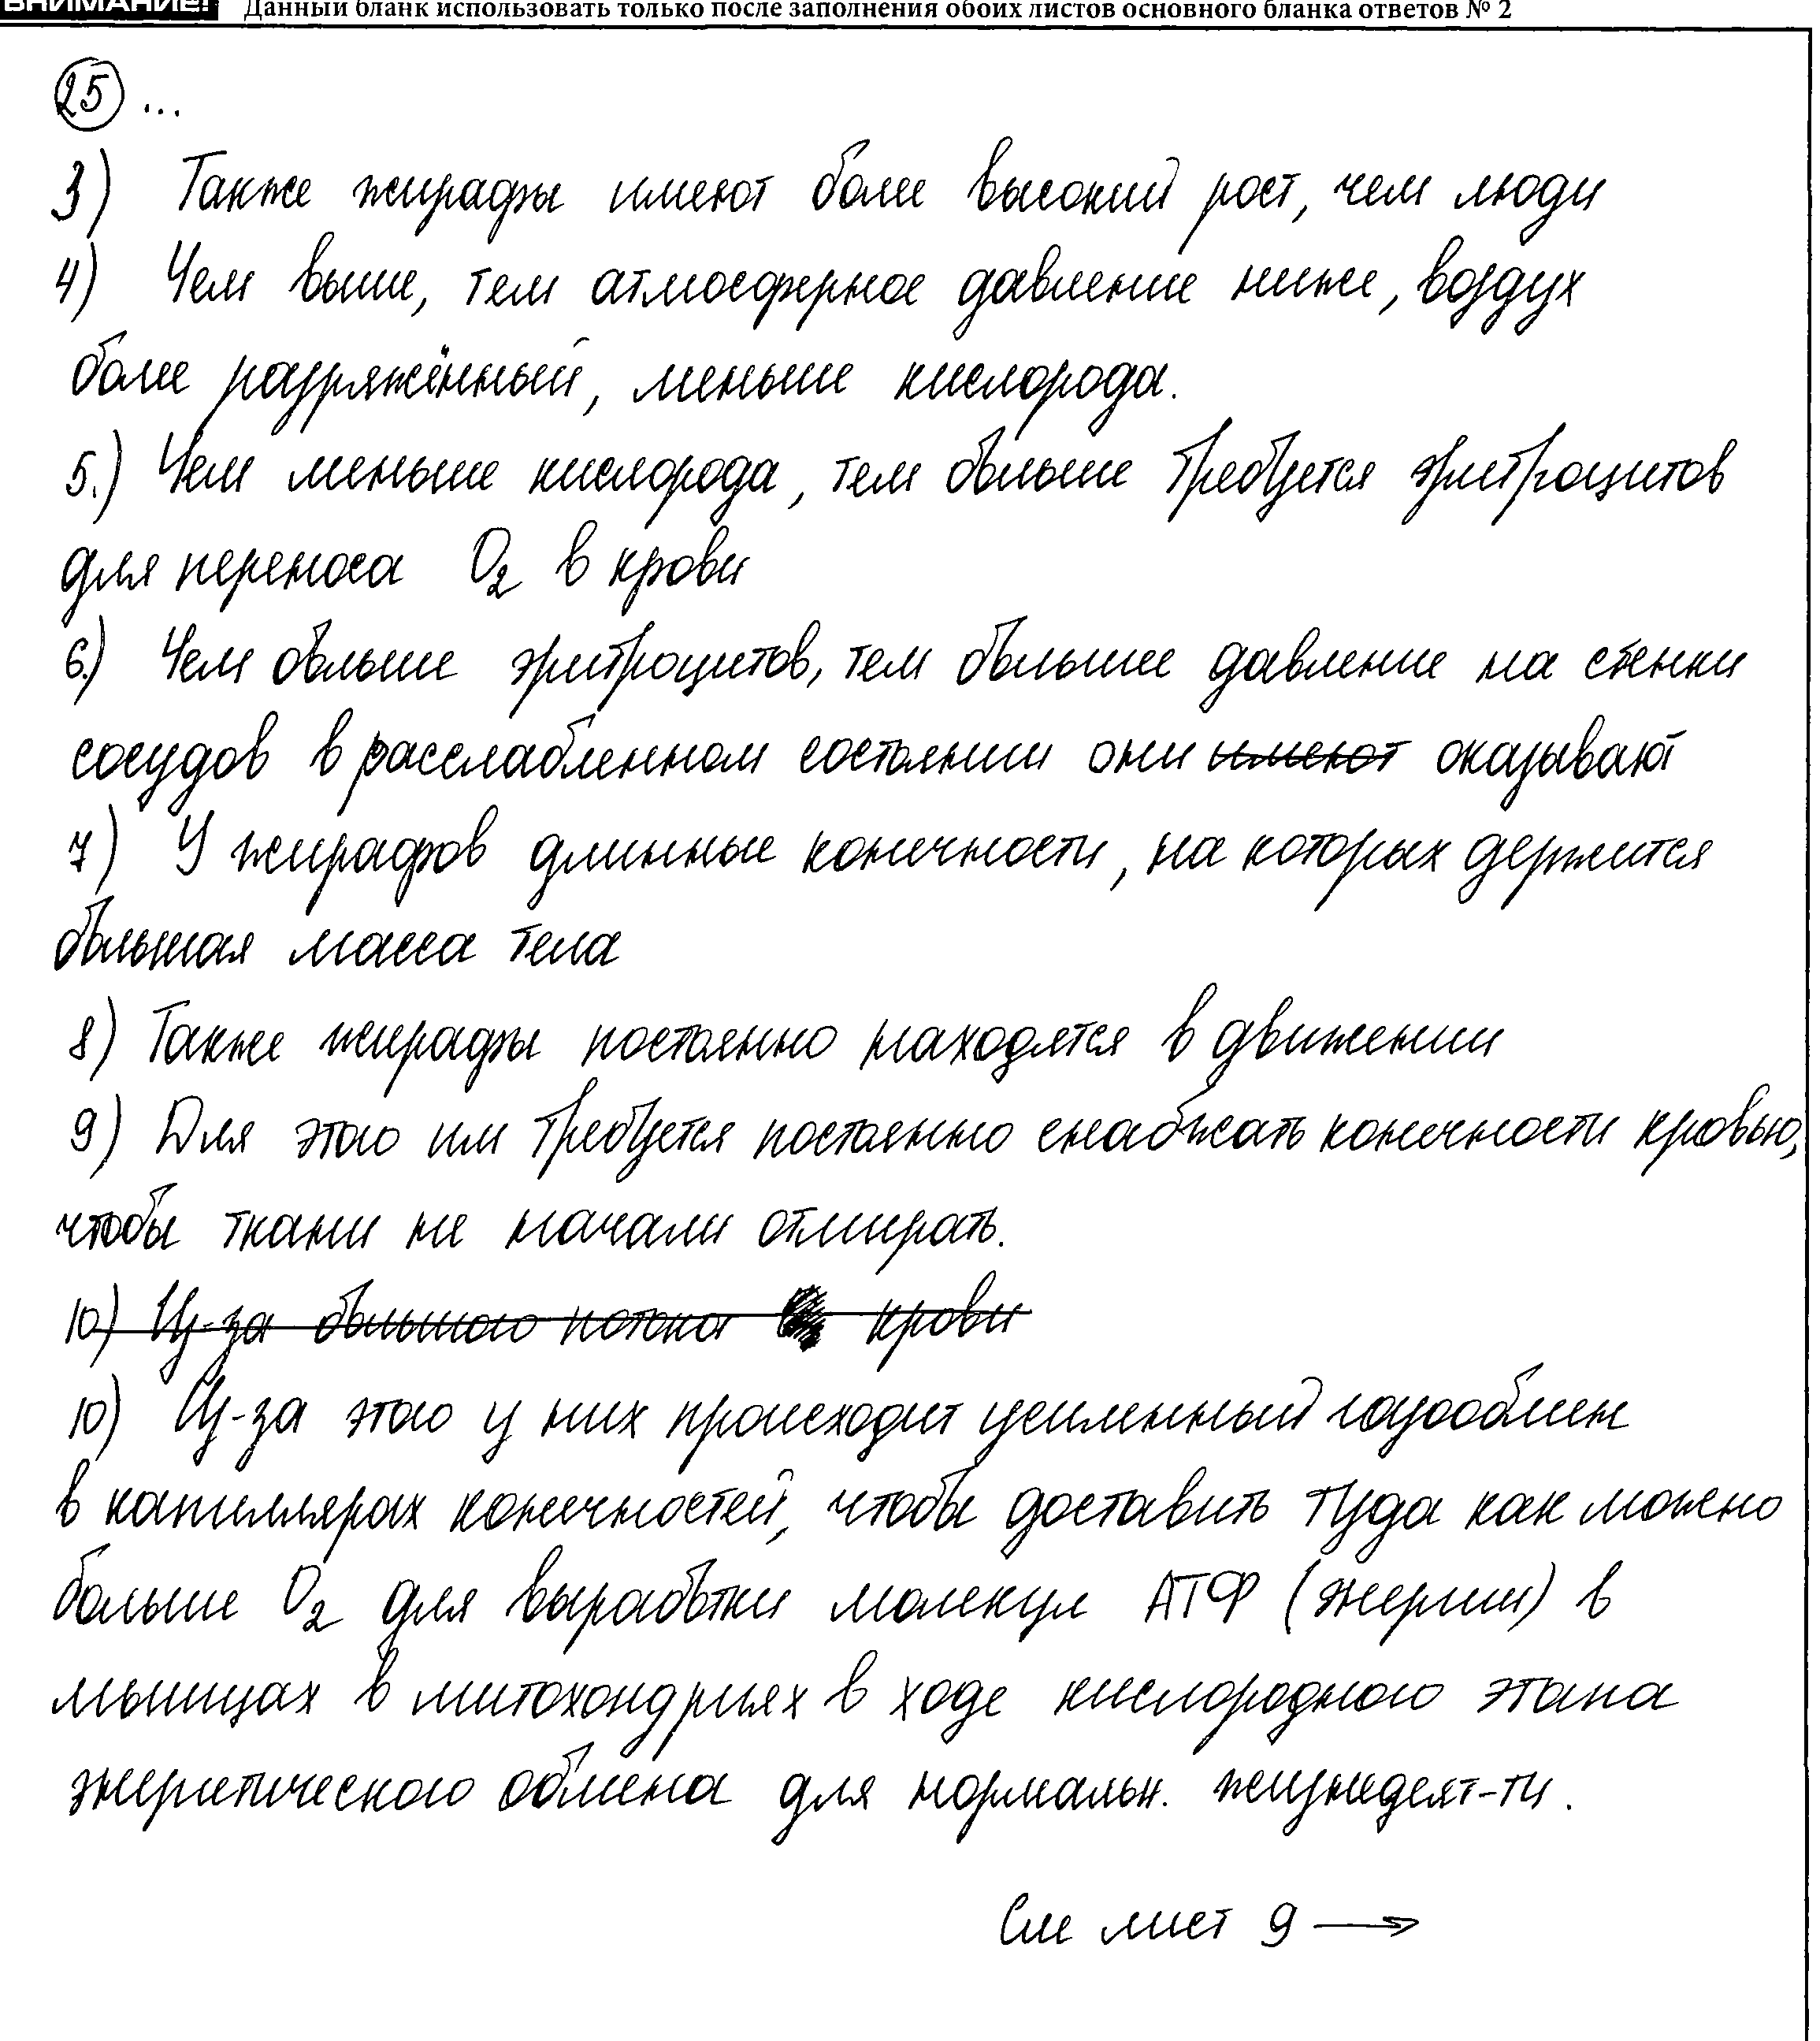 ВНИМАНИЕ! Данный бланк использовать только после заполнения обоих листов основного бланка ответов № 2
25 ...
3) Также жирафы имеют более высокий рост, чем люди
4) Чем выше, тем атмосферное давление ниже, воздух
более разряжённый, меньше кислорода.
5.) Чем меньше кислорода, тем больше требуется эритроцитов
для переноса O₂ в крови
6.) Чем больше эритроцитов, тем большее давление на стенки
сосудов в расслабленном состоянии они имеют оказывают
7) У жирафов длинные конечности, на которых держится
большая масса тела
8) Также жирафы постоянно находятся в движении
9) Для этого им требуется постоянно снабжать конечности кровью,
чтобы ткани не начали отмирать.
10) Из-за большого потока крови
10) Из-за этого у них происходит усиленный газообмен
в капиллярах конечностей, чтобы доставить туда как можно
больше O₂ для выработки молекул АТФ (энергии) в
мышцах в митохондриях в ходе кислородного этапа
энергетического обмена для нормальн. жизнедеят-ти.
См лист 9 →